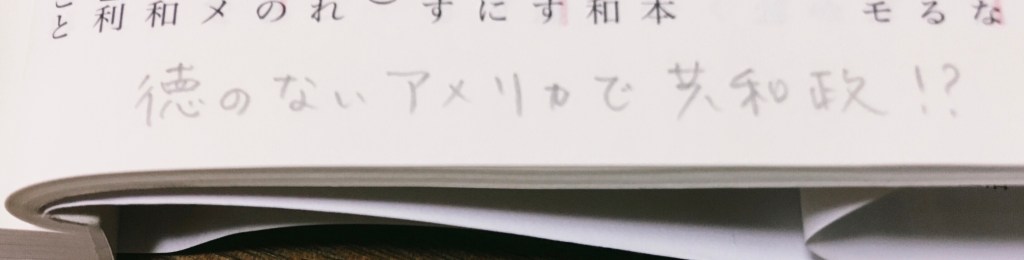 こと
利
和
メ
の
れ
す
に
す
和
本
モ
る
な
徳のないアメリカで共和政!?